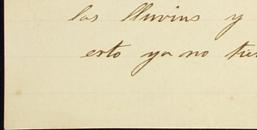 las lluvias y
esto ya no tie